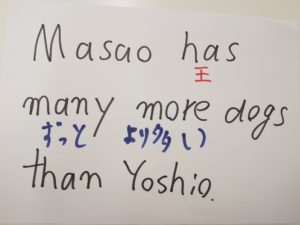 Masao has
王
many more dogs
ずっと より多い
than Yoshio.